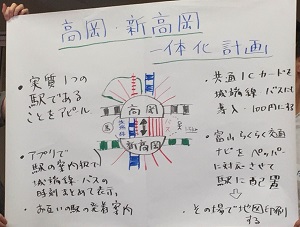 高岡・新高岡
一体化計画
・実質1つの
駅である
ことをアピール
・アプリで
駅の案内板で
城端線、バスの
時刻まとめて表示。
・お互いの駅の発着案内
高岡
新高岡
・共通ICカードを
城端線、バスにも
導入→100円にする
・富山らくらく交通
ナビをペッパー
に対応させて
駅に配置
⇨その場で地図印刷
する